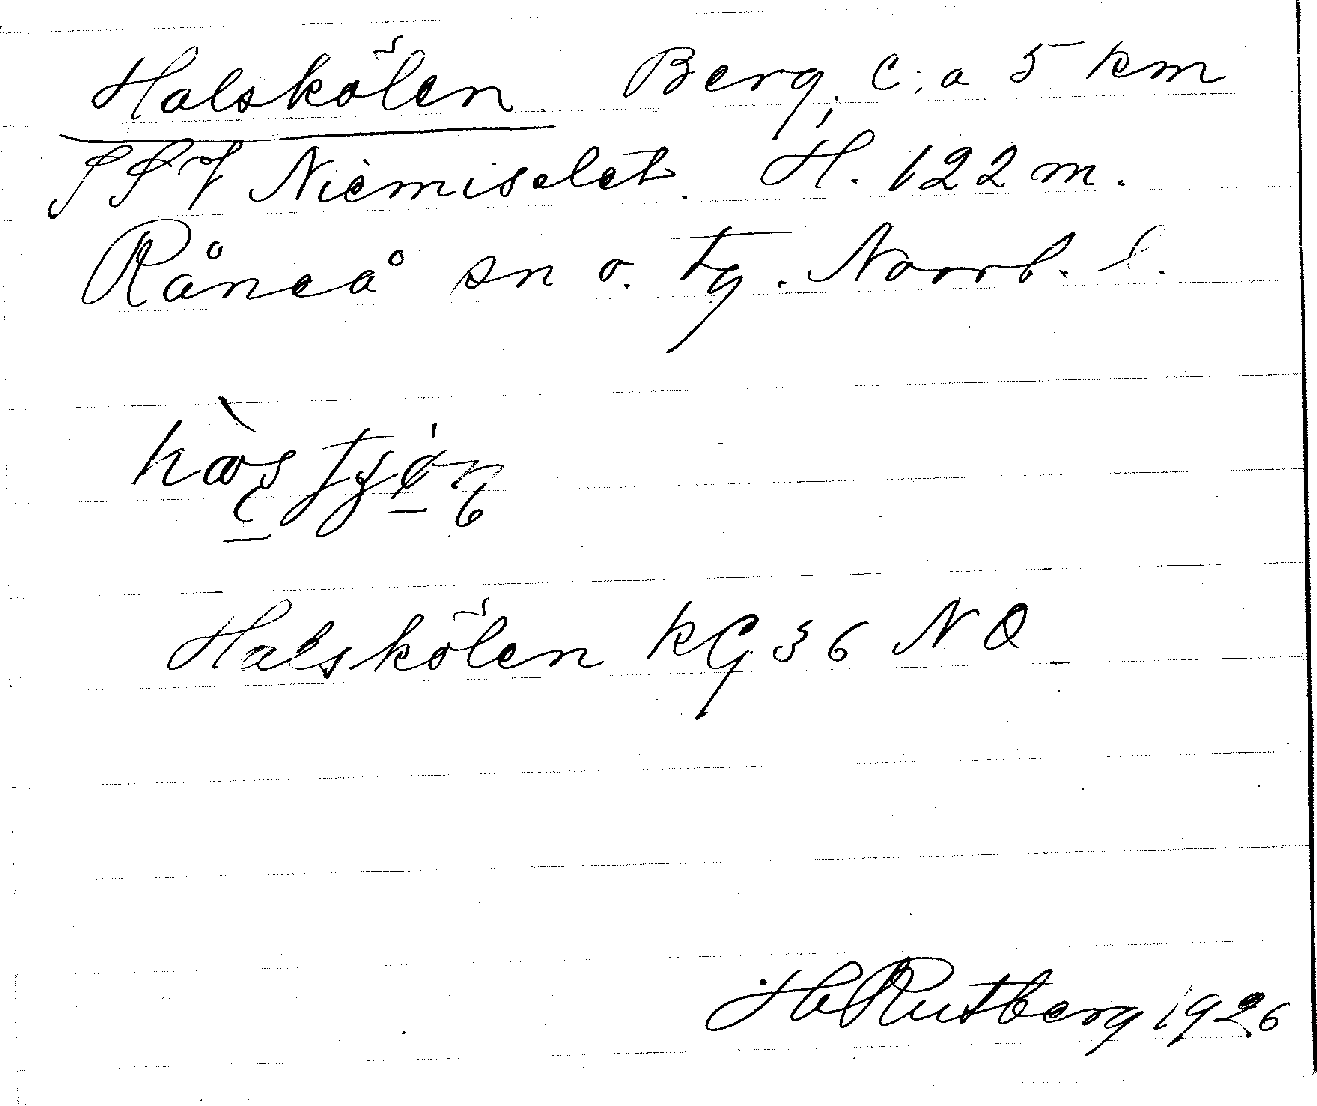 Halskölen Berg, c:a 5 km
SSV Niemiselet. H. 122 m.
Råneå sn o. tg. Norrb. l.
Halskölen KG 36 NO
H Rutberg 1926